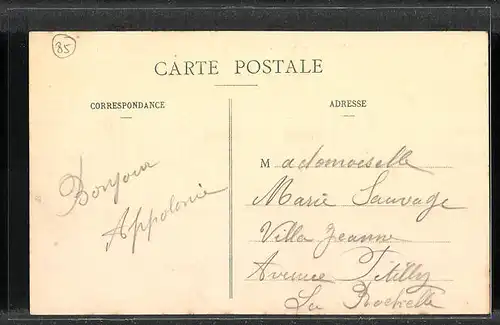 85
CARTE POSTALE
CORRESPONDANCE
Bonjour
Appolonie
ADRESSE
Mademoiselle
Marie Sauvage
Villa Jeanne
Avenue
La Rochelle